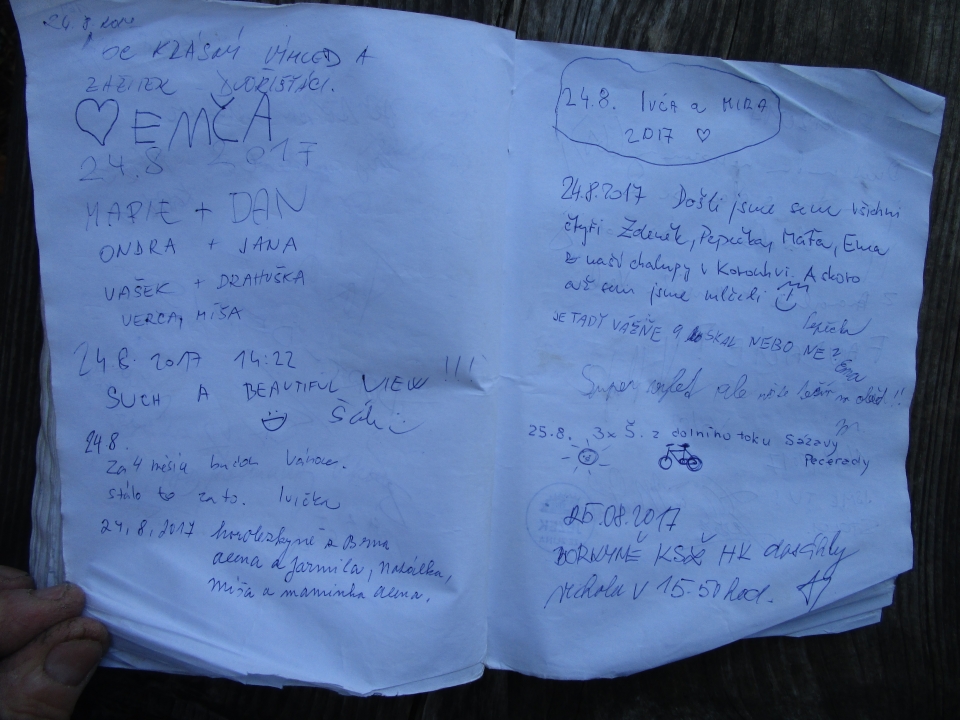 24.8.
KRÁSNÝ VÝHLED A
ZÁŽITEK
♡ EMČA
24.8 2017
MARIE + DAN
ONDRA + JANA
VAŠEK + DRAHUŠKA
VERCA, MÍŠA
24.8. 2017 14:22
SUCH A BEAUTIFUL VIEW !!!
24.8.
Za 4 měsíce budou Vánoce.
stálo to za to. Ivička
24.8.2017 horolezkyně z Brna
alena a Jarmila,
Míša a maminka alena.
24.8. Ivča a MIRA
2017 ♡
24.8.2017 Došli jsme sem všichni
čtyři Zdeněk, Pepička, Máťa, Ema
z naší chalupy v Korouhvi. A skoro
celé sem jsme mlčeli
Pepička
JE TADY VÁŽNĚ 9 SKAL NEBO NE?
Ema
Super výlet, ale
25.8. 3x Š. z dolního toku Sázavy
Pecerady
25.08.2017
HK dosáhly
vrcholu v 15-50 hod.